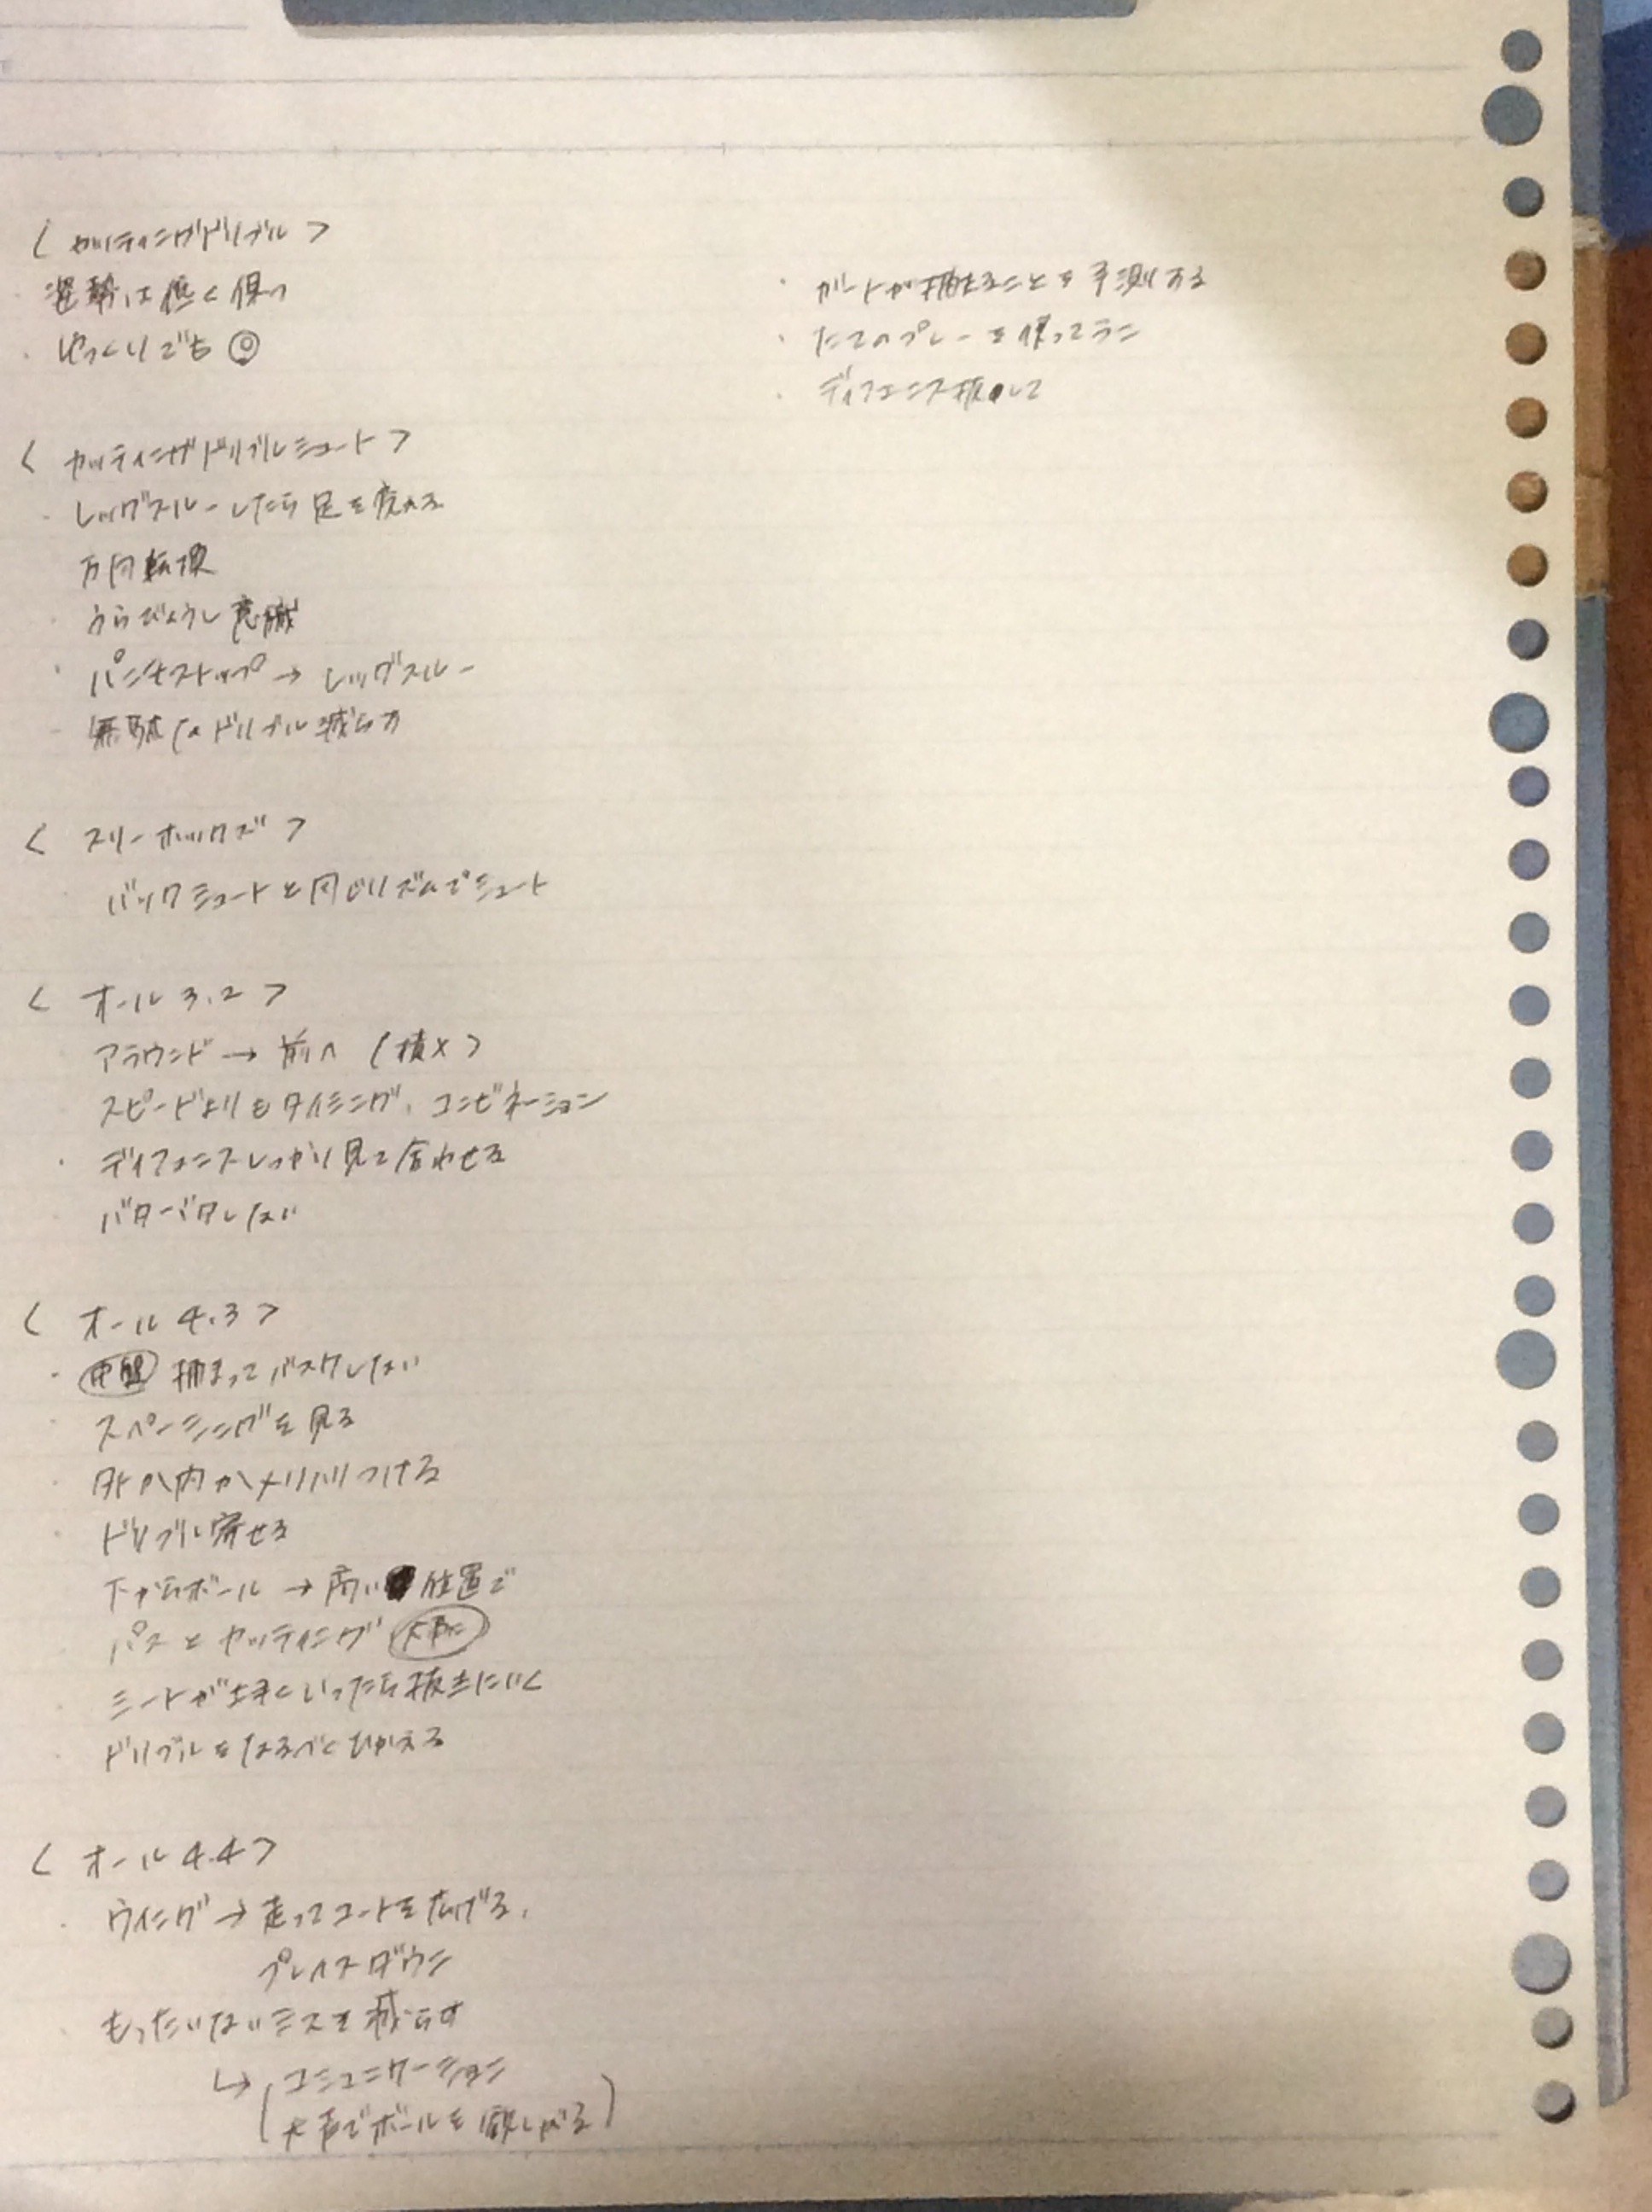 〈カッティングドリブル〉
・は低く保つ
・ゆっくりでも◎
〈カッティングドリブルシュート〉
・レッグスルーしたら足を変える
方向転換
・うらびょうし意識
・パンチストップ→レッグスルー
・無駄なドリブル減らす
〈スリーホックズ〉
・バックシュートと同じリズムでシュート
〈オール3.2〉
・アラウンド→前へ(横×)
・スピードよりもタイミング、コンビネーション
・ディフェンスしっかり見て合わせる
・バタバタしない
〈オール4.3〉
・捕まってバスケしない
・スペーシングを見る
・外か内かメリハリつける
・ドリブル寄せる
・下からボール→高い位置で
・パスとカッティング大事
・ミートが上手くいったら抜きにいく
・ドリブルをなるべくひかえる
〈オール4.4〉
・ウイング→走ってコートを広げる、
プレイスダウン
・もったいないミスを減らす
↳(コミュニケーション
大声でボールを欲しがる)
・ガードが捕まることを予測する
・たてのプレーを使ってラン
・ディフェンス抜いて